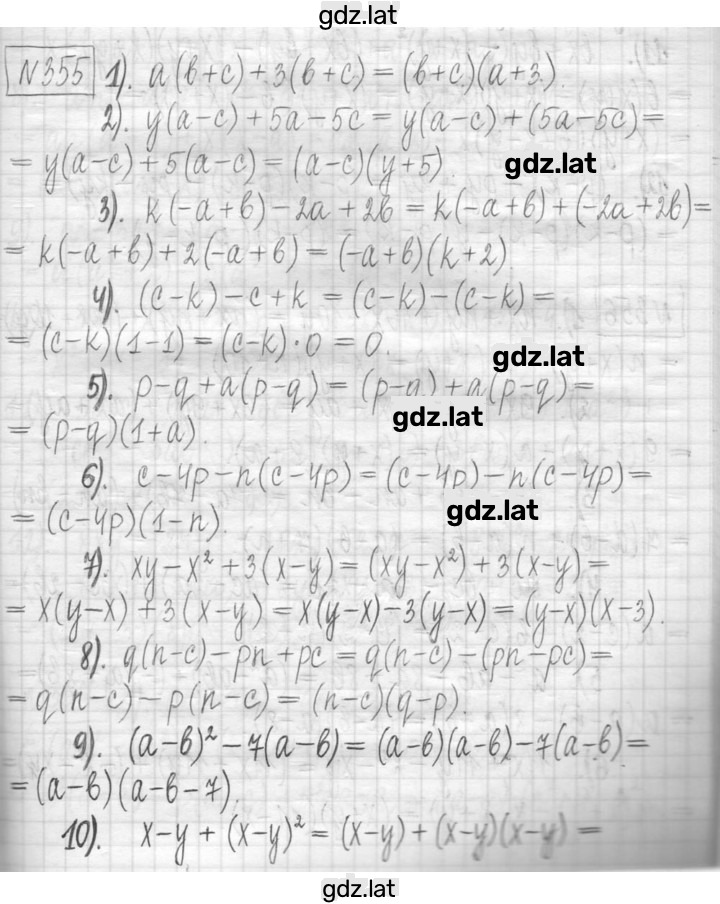 gdz.lat
N355 1). a(в+c)+3(в+c)=(в+c)(a+3).
2). y(a-c)+5a-5c=y(a-c)+(5a-5c)=
=y(a-c)+5(a-c)=(a-c)(y+5).
gdz.lat
3). k(-a+в)-2a+2в=k(-a+в)+(-2a+2в)=
=k(-a+в)+2(-a+в)=(-a+в)(k+2).
4). (c-k)-c+k=(c-k)-(c-k)=
=(c-k)(1-1)=(c-k)·0=0.
gdz.lat
5). p-q+a(p-q)=(p-q)+a(p-q)=
=(p-q)(1+a).
gdz.lat
6). c-4p-n(c-4p)=(c-4p)-n(c-4p)=
=(c-4p)(1-n).
gdz.lat
7). xy-x²+3(x-y)=(xy-x²)+3(x-y)=
=x(y-x)+3(x-y)=x(y-x)-3(y-x)=(y-x)(x-3).
8). q(n-c)-pn+pc=q(n-c)-(pn-pc)=
=q(n-c)-p(n-c)=(n-c)(q-p).
9). (a-в)²-7(a-в)=(a-в)(a-в)-7(a-в)=
=(a-в)(a-в-7).
10). x-y+(x-y)²=(x-y)+(x-y)(x-y)=
gdz.lat